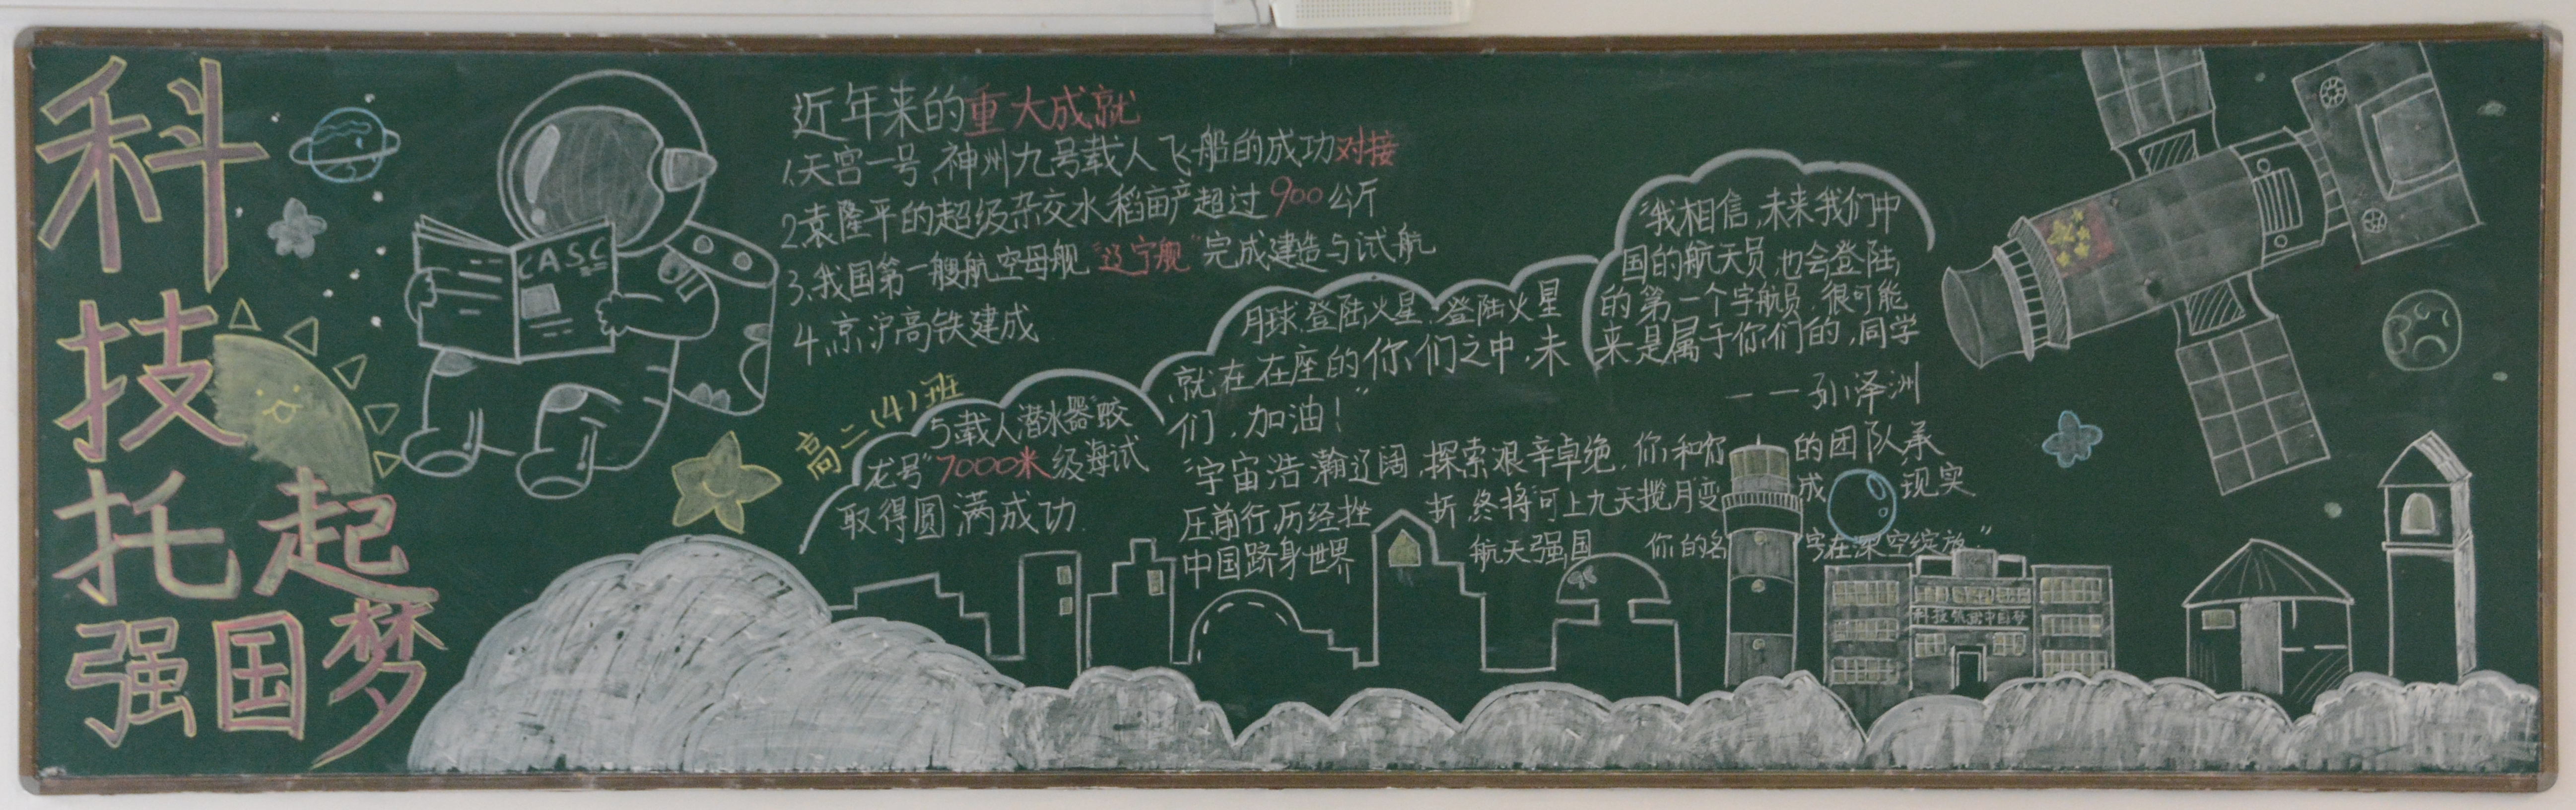 科
技
托起
强国梦
CASC
近年来的重大成就
1、天宫一号、神州九号载人飞船的成功对接
2、袁隆平的超级杂交水稻亩产超过900公斤
3、我国第一艘航空母舰"辽宁舰"完成建造与试航
4、京沪高铁建成
高二(4)班
5、载人潜水器"蛟
龙号"7000米级海试
取得圆满成功.
"我相信,未来我们中
国的航天员,也会登陆
月球、登陆火星,登陆火星
的第一个宇航员,很可能
就在在座的你们之中,未
来是属于你们的,同学
们,加油!"
——孙泽洲
"宇宙浩瀚辽阔,探索艰辛卓绝,你和你的团队承
压前行,历经挫折,终将"可上九天揽月"变成现实
中国跻身世界航天强国 你的名字在深空绽放."
科技筑就中国梦